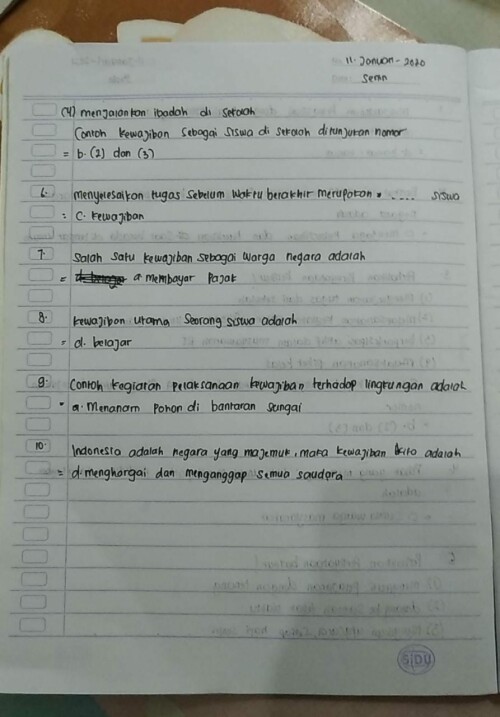 11 - Januari - 2020
Senin
(4) menjalankan ibadah di sekolah
Contoh kewajiban sebagai siswa di sekolah ditunjukan nomor
= b. (2) dan (3)
6. menyelesaikan tugas sebelum waktu berakhir merupakan . .... siswa
= C. kewajiban
7. Salah satu kewajiban sebagai warga negara adalah
= a. membayar Pajak
8. kewajiban utama seorang siswa adalah
= d. belajar
9. Contoh kegiatan pelaksanaan kewajiban terhadap lingkungan adalah
= a. Menanam pohon di bantaran sungai
10. Indonesia adalah negara yang majemuk, maka kewajiban kita adalah
= d. menghargai dan menganggap semua saudara
SIDU